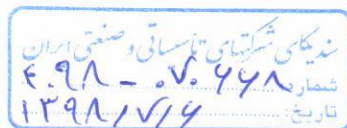 سندیکای شرکتهای تأسیساتی و صنعتی ایران
شماره ۴۰۹۸ - ۰۷۰۶۶۸
تاریخ: ۱۳۹۸/۷/۶